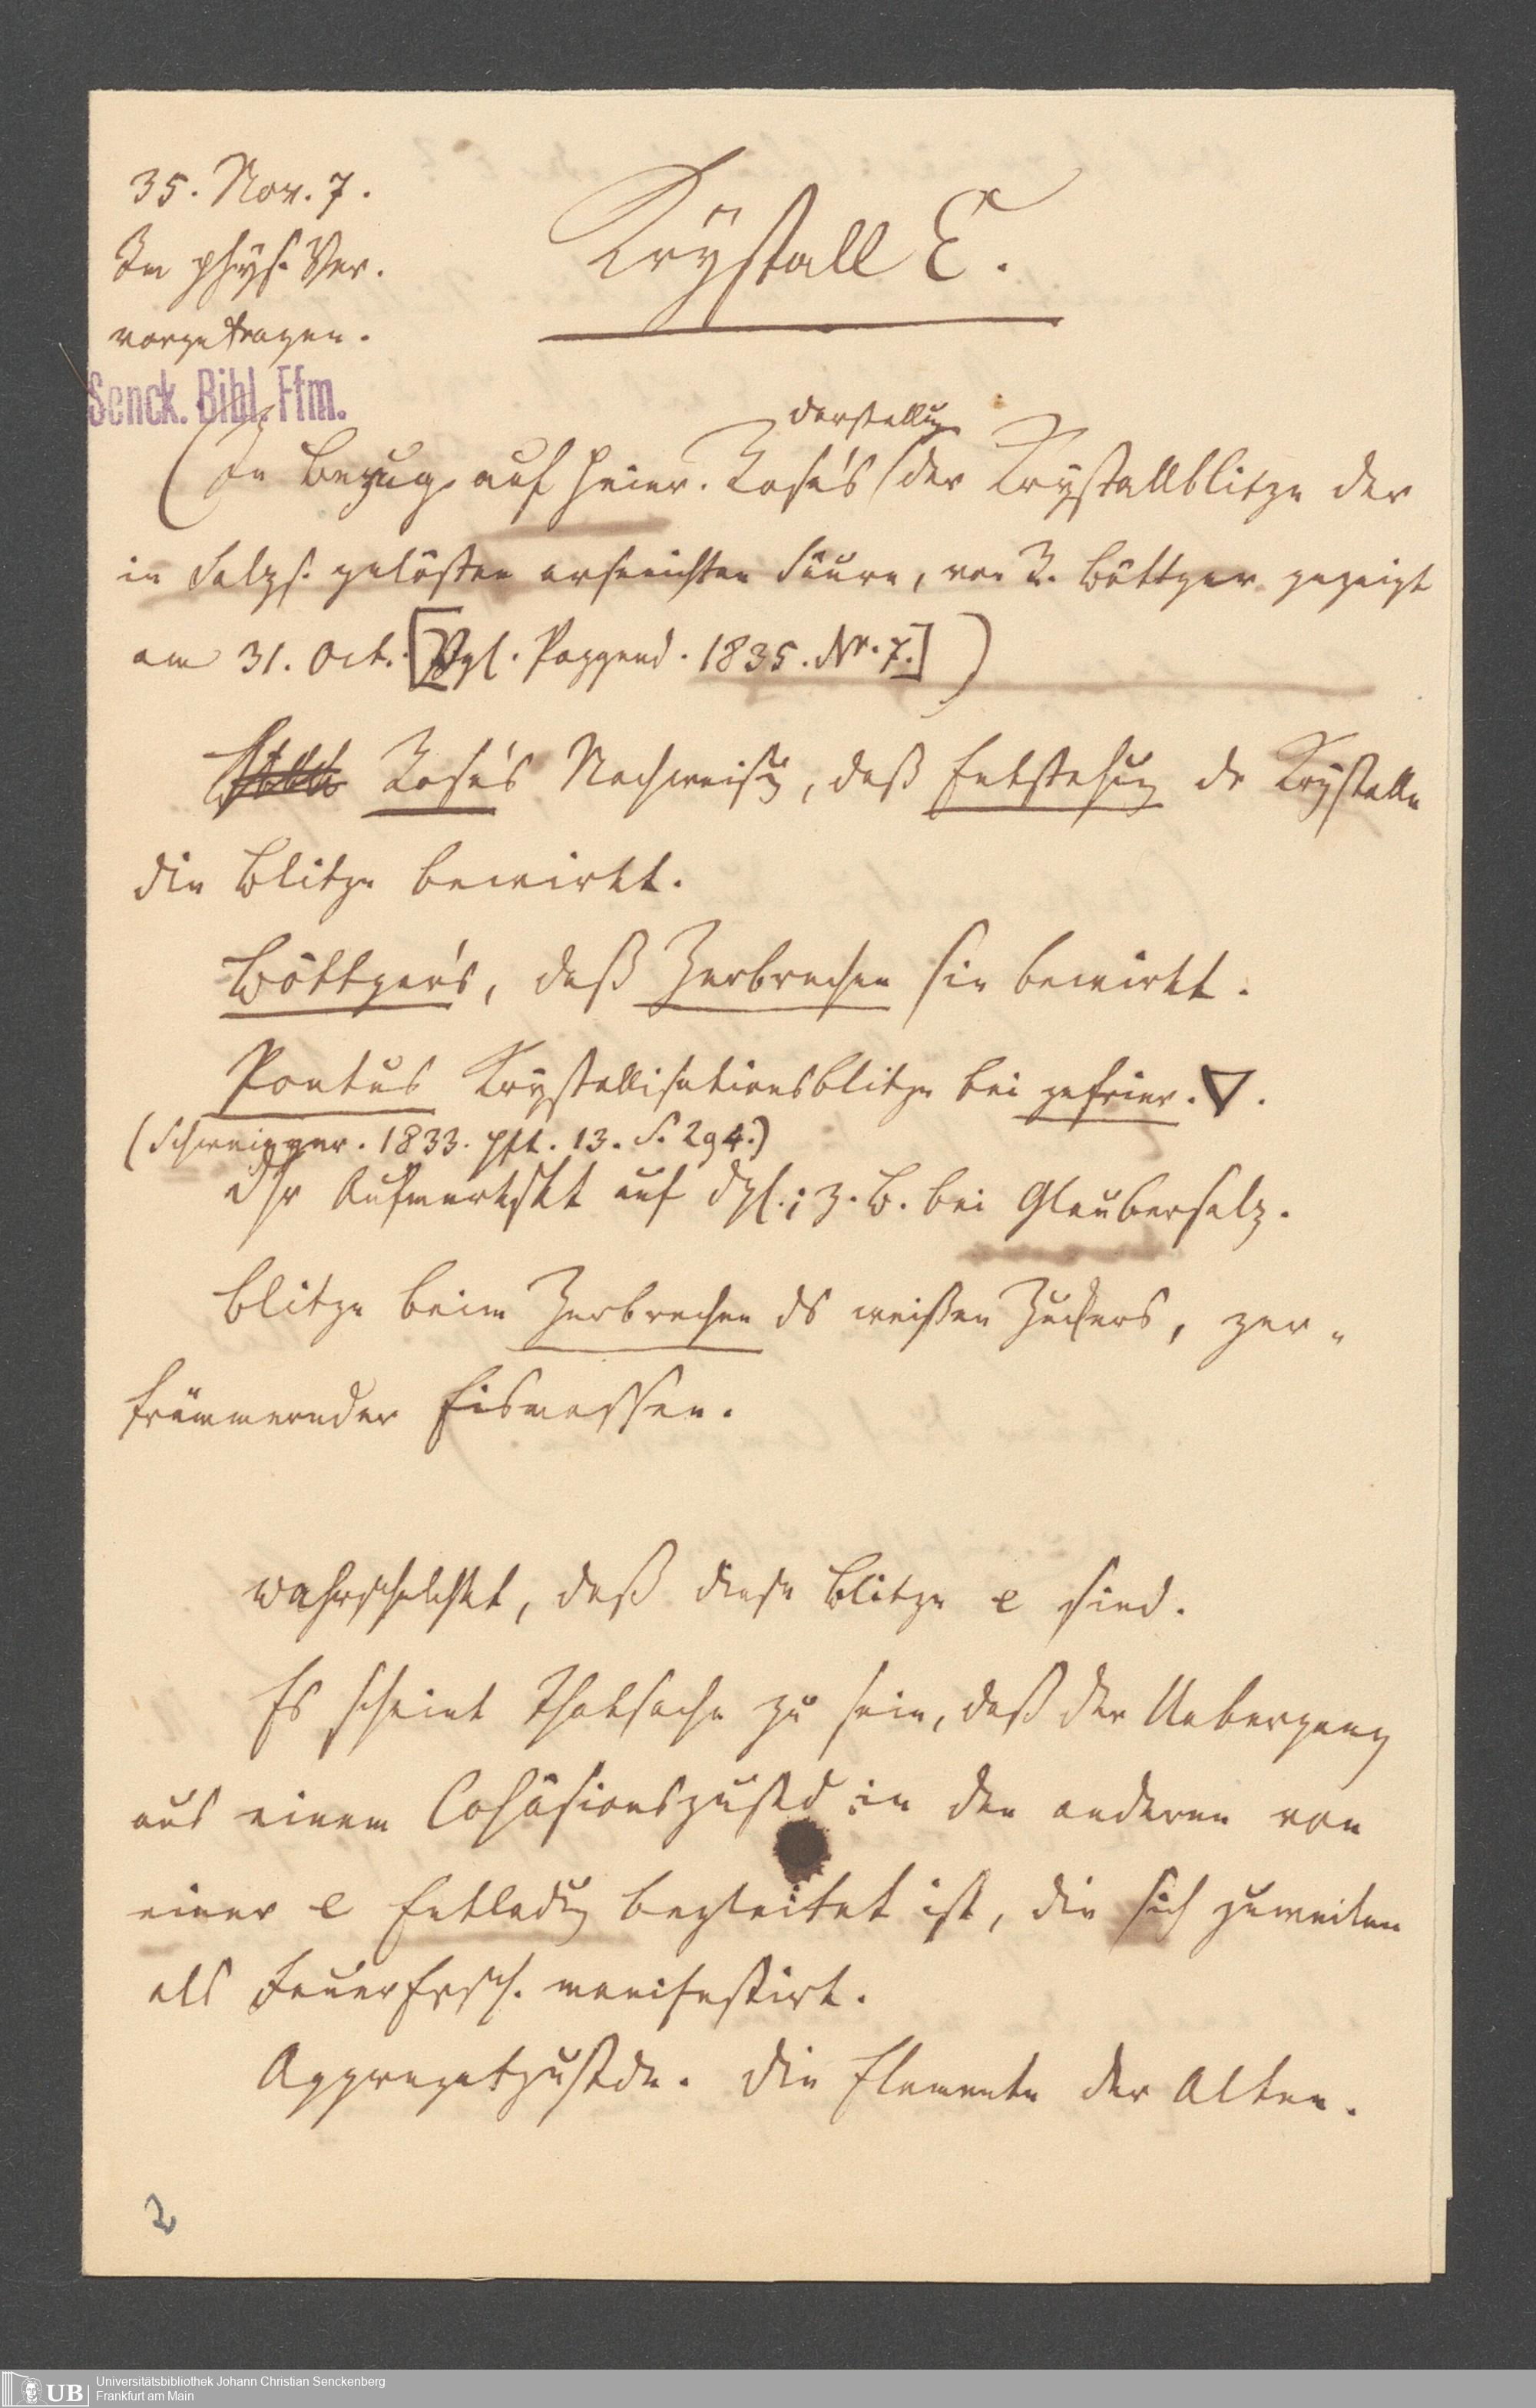 35. Nov. 7.
Im phys. Ver.
vorgetragen.
Krystall E.
Senck. Bibl. Ffm.
darstellug
(In Bezug auf Heinr. Rose's (der Krystallblitze der
in Salzs. gelösten arsenichten Säure, von R. Böttger gezeigt
am 31. Oct. [Vgl. Poggend. 1835. Nr. 7.])
Rose's Nachweisg, daß Entstehug dr Krystalle
die Blitze bewirkt.
Böttger's, daß Zerbrechen sie bewirkt.
Pontus Krystallisationsblitze bei gefrier. ▽.
(Schweigger. 1833. Hft. 13. S. 294.)
Aufmerkskt auf dgl.; z. B. bei Glaubersalz.
Blitze beim Zerbrechen ds weißen Zuckers, zer-
trümmernder Eismassen.
Wahrschlchkt, daß diese Blitze e sind.
Es scheint Thatsache zu sein, daß der Uebergang
aus einem Cohäsionszustd in den anderen von
einer e Entladg begleitet ist, die sich zuweilen
als Feuer Ersch. manifestirt.
Aggregatzustde. Die Elemente der Alten.
2
UB
Universitätsbibliothek Johann Christian Senckenberg
Frankfurt am Main